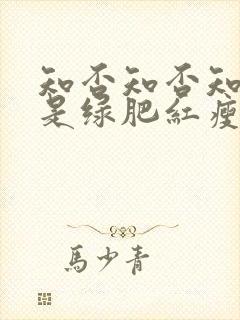 知否知否知
是绿肥紅瘦
馬少青